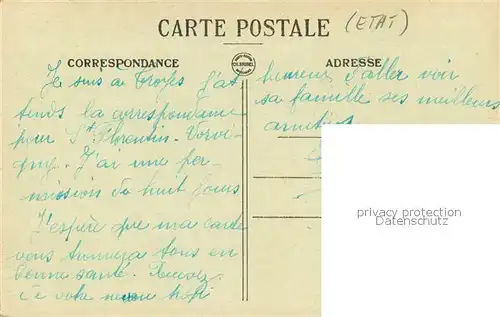 CARTE POSTALE (ETAT)
CORRESPONDANCE
ADRESSE
Je suis a Troyes j'at
tends la correspondance
pour St Florentin - Vervi
gny. J'ai une per
mission de huit jours
J'espère que ma carte
vous trouvera tous en
bonne santé. Recevez
de votre
heureux d'aller voir
sa famille ses meilleurs
amitiés
privacy protection
www.ansichtskartenversand.com